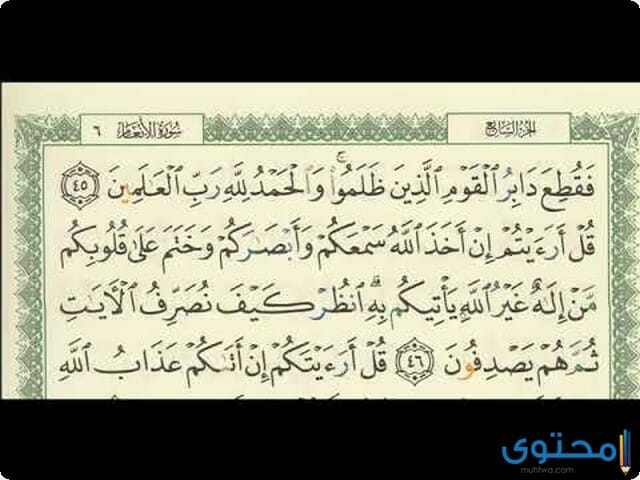 الجزء السابع
سورة الأنعام ٦
فَقُطِعَ دَابِرُ ٱلْقَوْمِ ٱلَّذِينَ ظَلَمُوا۟ ۚ وَٱلْحَمْدُ لِلَّهِ رَبِّ ٱلْعَـٰلَمِينَ ٤٥
قُلْ أَرَءَيْتُمْ إِنْ أَخَذَ ٱللَّهُ سَمْعَكُمْ وَأَبْصَـٰرَكُمْ وَخَتَمَ عَلَىٰ قُلُوبِكُم
مَّنْ إِلَـٰهٌ غَيْرُ ٱللَّهِ يَأْتِيكُم بِهِ ۗ ٱنظُرْ كَيْفَ نُصَرِّفُ ٱلْـَٔايَـٰتِ
ثُمَّ هُمْ يَصْدِفُونَ ٤٦ قُلْ أَرَءَيْتَكُمْ إِنْ أَتَىٰكُمْ عَذَابُ ٱللَّهِ
محتوى
muhtwa.com